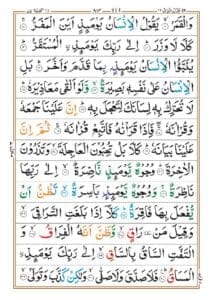 وَالْقَمَرُ ۙ يَقُوْلُ الْاِنْسَانُ يَوْمَئِذٍ اَيْنَ الْمَفَرُّ ۚ
كَلَّا لَا وَزَرَ ؕ اِلٰى رَبِّكَ يَوْمَئِذِ ِۨالْمُسْتَقَرُّ ؕ
يُنَبَّؤُا الْاِنْسَانُ يَوْمَئِذٍۭ بِمَا قَدَّمَ وَاَخَّرَ ؕ بَلِ
الْاِنْسَانُ عَلٰى نَفْسِهٖ بَصِيْرَةٌ ۙ وَّلَوْ اَلْقٰى مَعَاذِيْرَهٗ ؕ
لَا تُحَرِّكْ بِهٖ لِسَانَكَ لِتَعْجَلَ بِهٖ ؕ اِنَّ عَلَيْنَا جَمْعَهٗ
وَقُرْاٰنَهٗ ۚ فَاِذَا قَرَاْنٰهُ فَاتَّبِعْ قُرْاٰنَهٗ ۚ ثُمَّ اِنَّ
عَلَيْنَا بَيَانَهٗ ؕ كَلَّا بَلْ تُحِبُّوْنَ الْعَاجِلَةَ ۙ وَتَذَرُوْنَ
الْاٰخِرَةَ ؕ وُجُوْهٌ يَّوْمَئِذٍ نَّاضِرَةٌ ۙ اِلٰى رَبِّهَا
نَاظِرَةٌ ۚ وَوُجُوْهٌ يَّوْمَئِذٍۭ بَاسِرَةٌ ۙ تَظُنُّ اَنْ
يُّفْعَلَ بِهَا فَاقِرَةٌ ؕ كَلَّاۤ اِذَا بَلَغَتِ التَّرَاقِيَ ۙ
وَقِيْلَ مَنْ ٚ رَاقٍ ۙ وَّظَنَّ اَنَّهُ الْفِرَاقُ ۙ وَ
الْتَفَّتِ السَّاقُ بِالسَّاقِ ۙ اِلٰى رَبِّكَ يَوْمَئِذِ ِۨ
الْمَسَاقُ ؕ فَلَا صَدَّقَ وَلَا صَلّٰى ۙ وَلٰكِنْ كَذَّبَ وَتَوَلّٰى ۙ